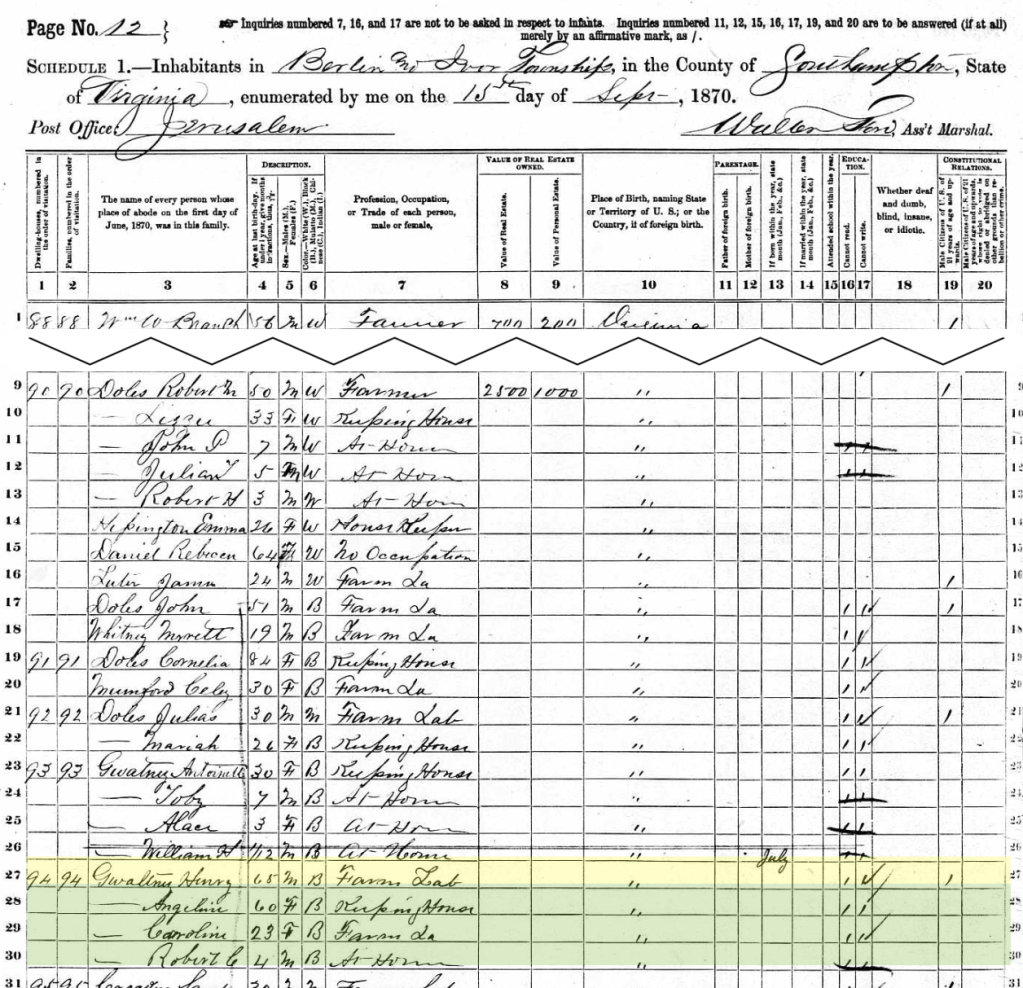 Page No. 12 } Inquiries numbered 7, 16, and 17 are not to be asked in respect to infants. Inquiries numbered 11, 12, 15, 16, 17, 19, and 20 are to be answered (if at all)
merely by an affirmative mark, as /.
SCHEDULE 1.—Inhabitants in Berlin and Ivor Township, in the County of Southampton, State
of Virginia, enumerated by me on the 15th day of Sept, 1870.
Post Office: Jerusalem Walter Ford, Ass't Marshal.
DESCRIPTION. VALUE OF REAL ESTATE OWNED. PARENTAGE. EDUCATION. CONSTITUTIONAL RELATIONS.
Dwelling-houses, numbered in the order of visitation.
Families, numbered in the order of visitation.
The name of every person whose place of abode on the first day of June, 1870, was in this family.
Age at last birthday. If under 1 year, give months in fractions, thus, 3/12
Sex.—Males (M.), Females (F.)
Color.—White (W.), Black (B.), Mulatto (M.), Chinese (C.), Indian (I.)
Profession, Occupation, or Trade of each person, male or female,
Value of Real Estate.
Value of Personal Estate.
Place of Birth, naming State or Territory of U. S.; or the Country, if of foreign birth.
Father of foreign birth.
Mother of foreign birth.
If born within the year, state month (Jan., Feb., &c.)
If married within the year, state month (Jan., Feb., &c.)
Attended school within the year.
Cannot read.
Cannot write.
Whether deaf and dumb, blind, insane, or idiotic.
Male Citizens of U.S. of 21 years of age and upwards.
1 2 3 4 5 6 7 8 9 10 11 12 13 14 15 16 17 18 19 20
1 88 88 Wm W Branch 56 M W Farmer 700 200 Virginia /
9 90 90 Doles Robert M 50 M W Farmer 2500 1000 " / 9
10 — Lizzie 33 F W Keeping House "
11 — John P 7 M W At Home " / / 11
12 — Julian T 5 M W At Home " / / 12
13 — Robert H 3 M W At Home " 13
14 Emma 26 F W House Keeper " 14
15 Daniel Rebecca 64 F W No Occupation " 15
16 Luter James 24 M W Farm La " / 16
17 Doles John 51 M B Farm La " / / / 17
18 Whitney 19 M B Farm La " / / 18
19 91 91 Doles Cornelia 84 F B Keeping House " / / 19
20 Mumford Celey 30 F B Farm La " / / 20
21 92 92 Doles Julias 30 M M Farm Lab " / / / 21
22 — Mariah 26 F B Keeping House " / /
23 93 93 Gwatney Antoinette 30 F B Keeping House " / / 23
24 — Toby 7 M B At Home " / / 24
25 — Alace 3 F B At Home " / / 25
26 — William H 1/12 M B At Home " July 26
27 94 94 Gwaltney Henry 65 M B Farm Lab " / / / 27
28 — Angeline 60 F B Keeping House " / / 28
29 — Caroline 23 F B Farm La " / / 29
30 — Robert C 4 M B At Home " / / 30
31 95 95 31